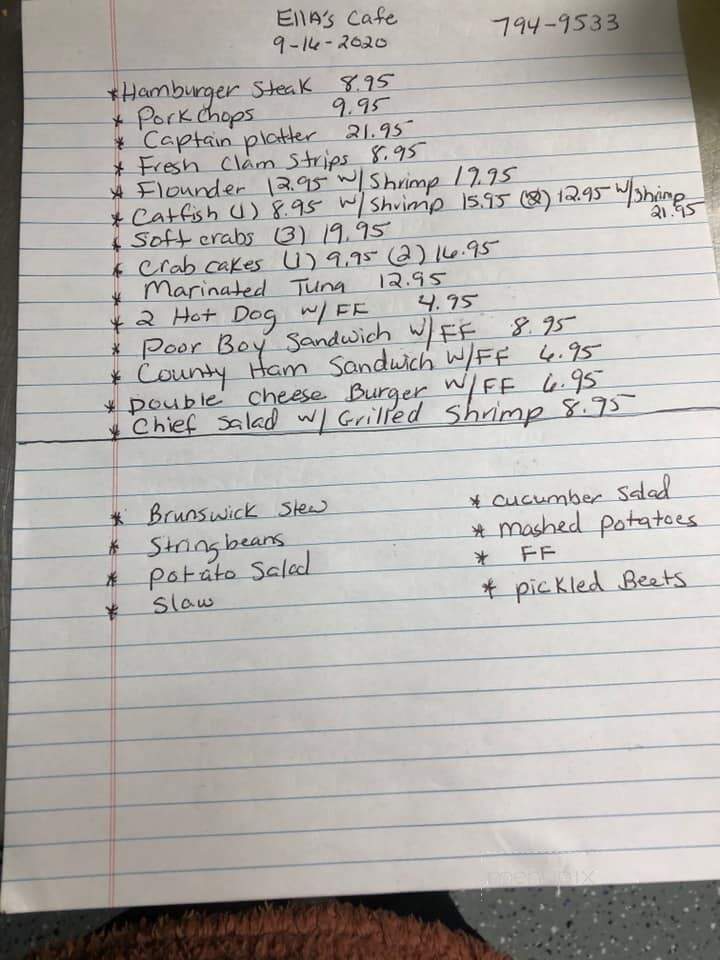 Ella's Cafe 794-9533
9-16-2020
* Hamburger Steak 8.95
* Pork chops 9.95
* Captain platter 21.95
* Fresh Clam Strips 8.95
* Flounder 12.95 w/ Shrimp 19.95
* Catfish (1) 8.95 w/ shrimp 15.95 (2) 12.95 w/ shrimp
21.95
* Soft crabs (3) 19.95
* Crab cakes (1) 9.95 (2) 16.95
* Marinated Tuna 12.95
* 2 Hot Dog w/ FF 4.95
* Poor Boy Sandwich w/ FF 8.95
* County Ham Sandwich w/ FF 6.95
* Double Cheese Burger w/ FF 6.95
* Chief Salad w/ Grilled Shrimp 8.95
* Brunswick Stew
* String beans
* Potato Salad
* Slaw
* Cucumber Salad
* Mashed Potatoes
* FF
* Pickled Beets
menupix